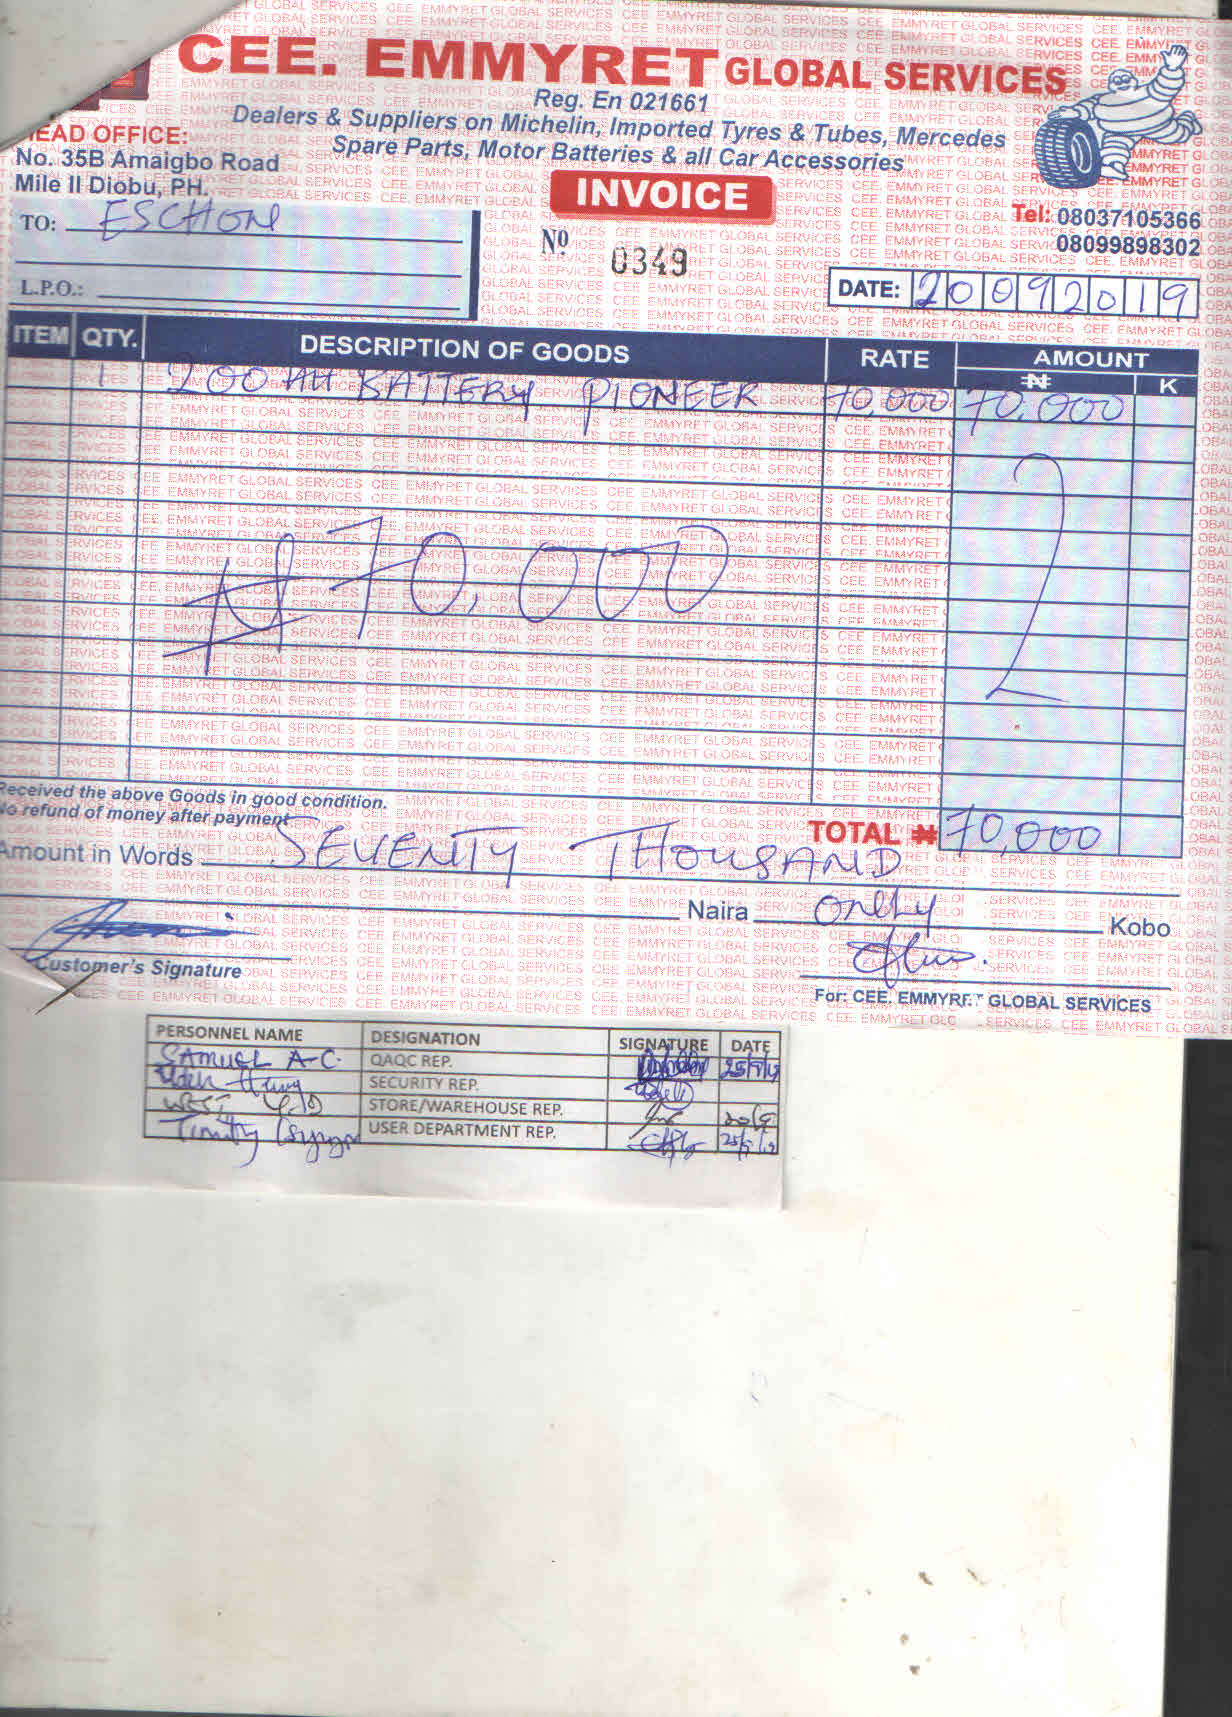 CEE. EMMYRET GLOBAL SERVICES
Reg. En 021661
Dealers & Suppliers on Michelin, Imported Tyres & Tubes, Mercedes
Spare Parts, Motor Batteries & all Car Accessories
HEAD OFFICE:
No. 35B Amaigbo Road
Mile II Diobu, PH.
INVOICE
Tel: 08037105366
08099898302
TO: ESCHON
Nº 0349
L.P.O.:
DATE: 20092019
ITEM QTY. DESCRIPTION OF GOODS RATE AMOUNT
₦ K
1 200AH BATTERY PIONEER 70,000 70,000
₦70,000
Received the above Goods in good condition.
No refund of money after payment
TOTAL ₦ 70,000
Amount in Words SEVENTY THOUSAND
Naira Only Kobo
Customer's Signature
For: CEE. EMMYRET GLOBAL SERVICES
PERSONNEL NAME DESIGNATION SIGNATURE DATE
SAMUEL A-C. QAQC REP.
SECURITY REP.
STORE/WAREHOUSE REP. 20/9
USER DEPARTMENT REP.